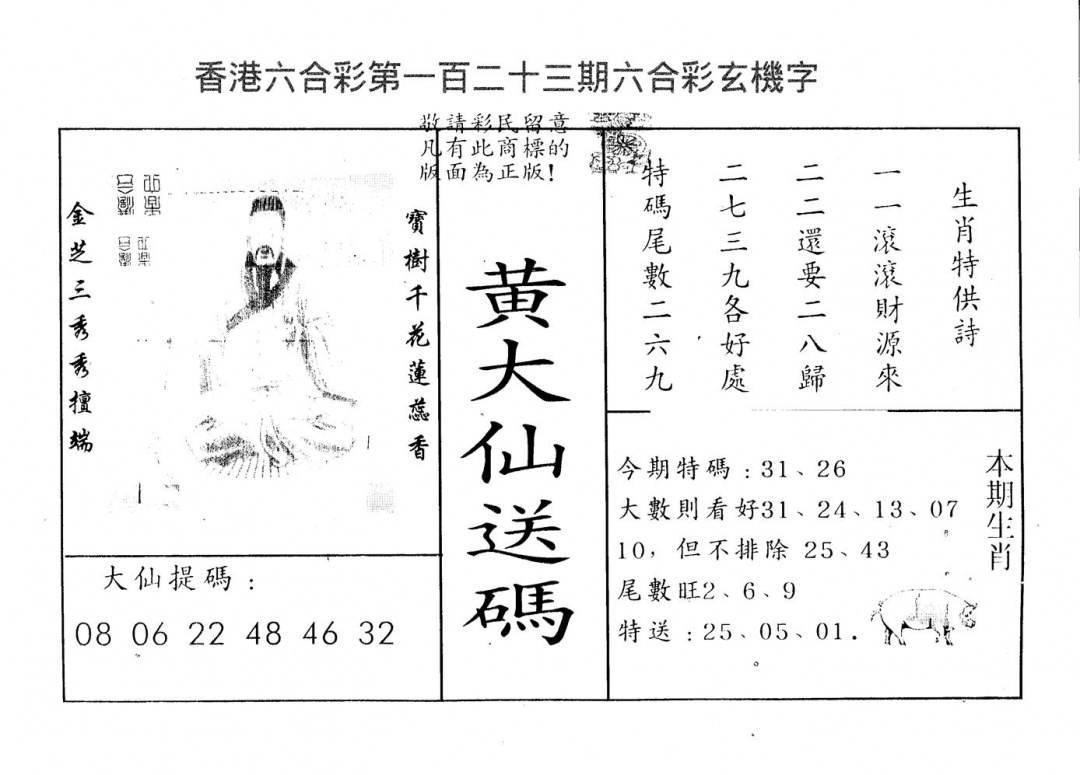 香港六合彩第一百二十三期六合彩玄機字
敬請彩民留意
凡有此商標的
版面為正版!
寶樹千花蓮蕊香
金芝三秀秀擅端
黃大仙送碼
生肖特供詩
一一滾滾財源來
二二還要二八歸
二七三九各好處
特碼尾數二六九
大仙提碼:
08 06 22 48 46 32
本期生肖
今期特碼:31、26
大數則看好31、24、13、07
10,但不排除 25、43
尾數旺2、6、9
特送:25、05、01.